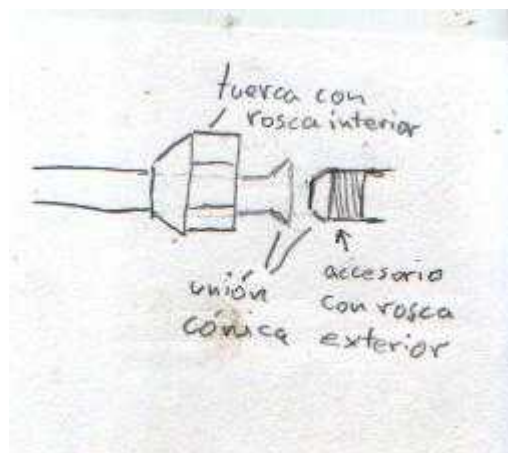 tuerca con
rosca interior
unión
cónica
accesorio
con rosca
exterior